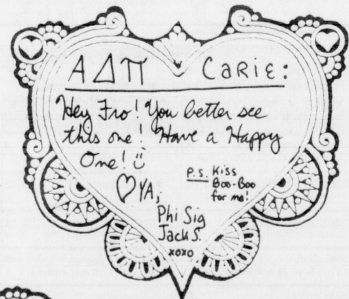 ΑΔΠ CARIE:
Hey Fro! You better see
this one! Have a Happy
One!
♡YA,
P.S. Kiss
Boo-Boo
for me!
Phi Sig
Jack S.
xoxo